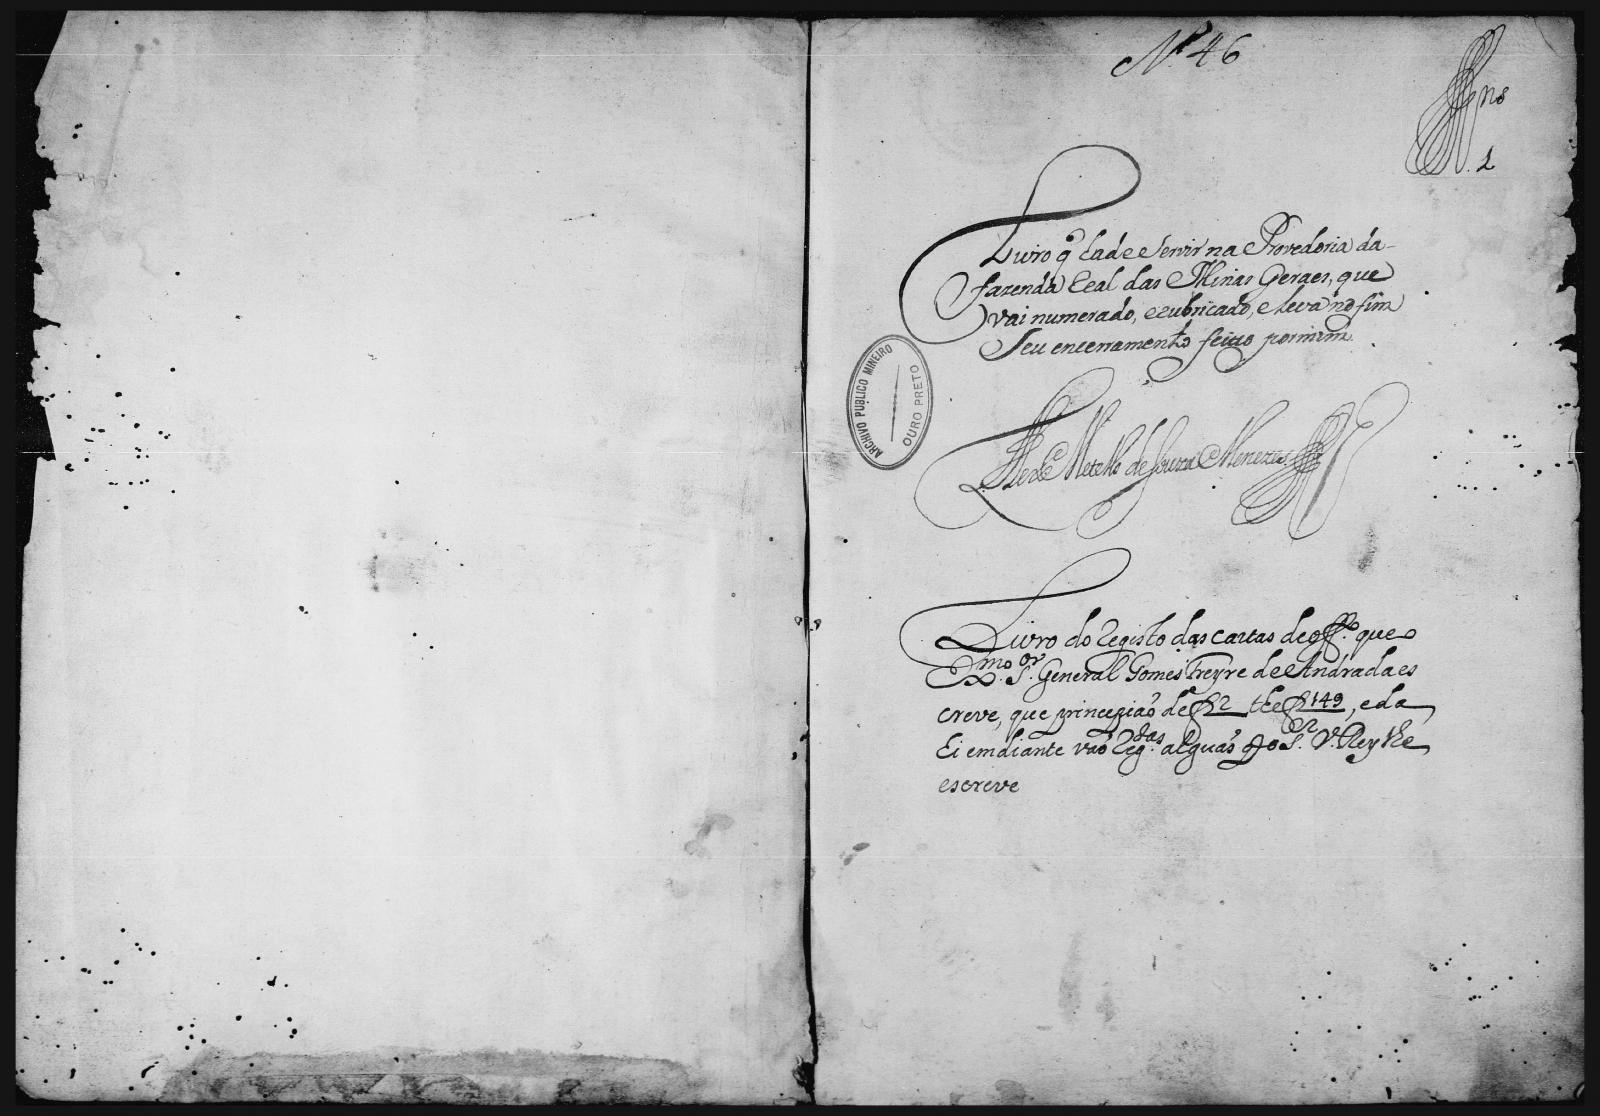 Nº 46
ns
1
Livro q̃ hade servir na Provedoria da
fazenda Real das Minas Geraes, que
vai numerado, e rubricado, e leva no fim
seu encerramento feito por mim
ARCHIVO PUBLICO MINEIRO
OURO PRETO
Metello de Souza e Menezes
Livro do Registo das cartas de off.º que o
Ex.mo S.or General Gomes Freyre de Andrada es
creve, que principiaõ de f 2 the f 149, e da
hi em diante vaõ Reg.das alguãs q̃ o S.r V. Rey lhe
escreve